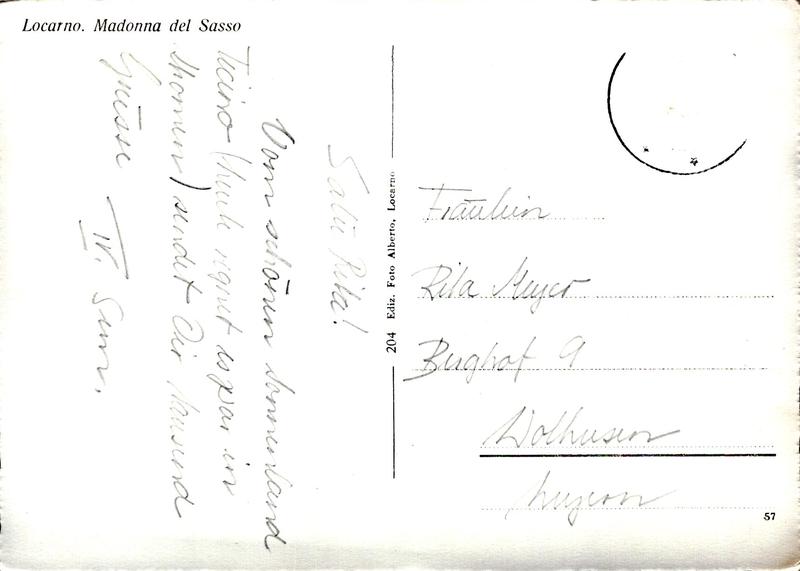 Locarno. Madonna del Sasso
Salü Rita!
Vom schönen Sonnenland
Ticino (heute regnet es gar in
Strömen) sendet Dir tausend
Grüsse IV. Sem.
204 Ediz. Foto Alberto, Locarno
Fräulein
Rita Meyer
Berghof 9
Wolhusen
Luzern
57